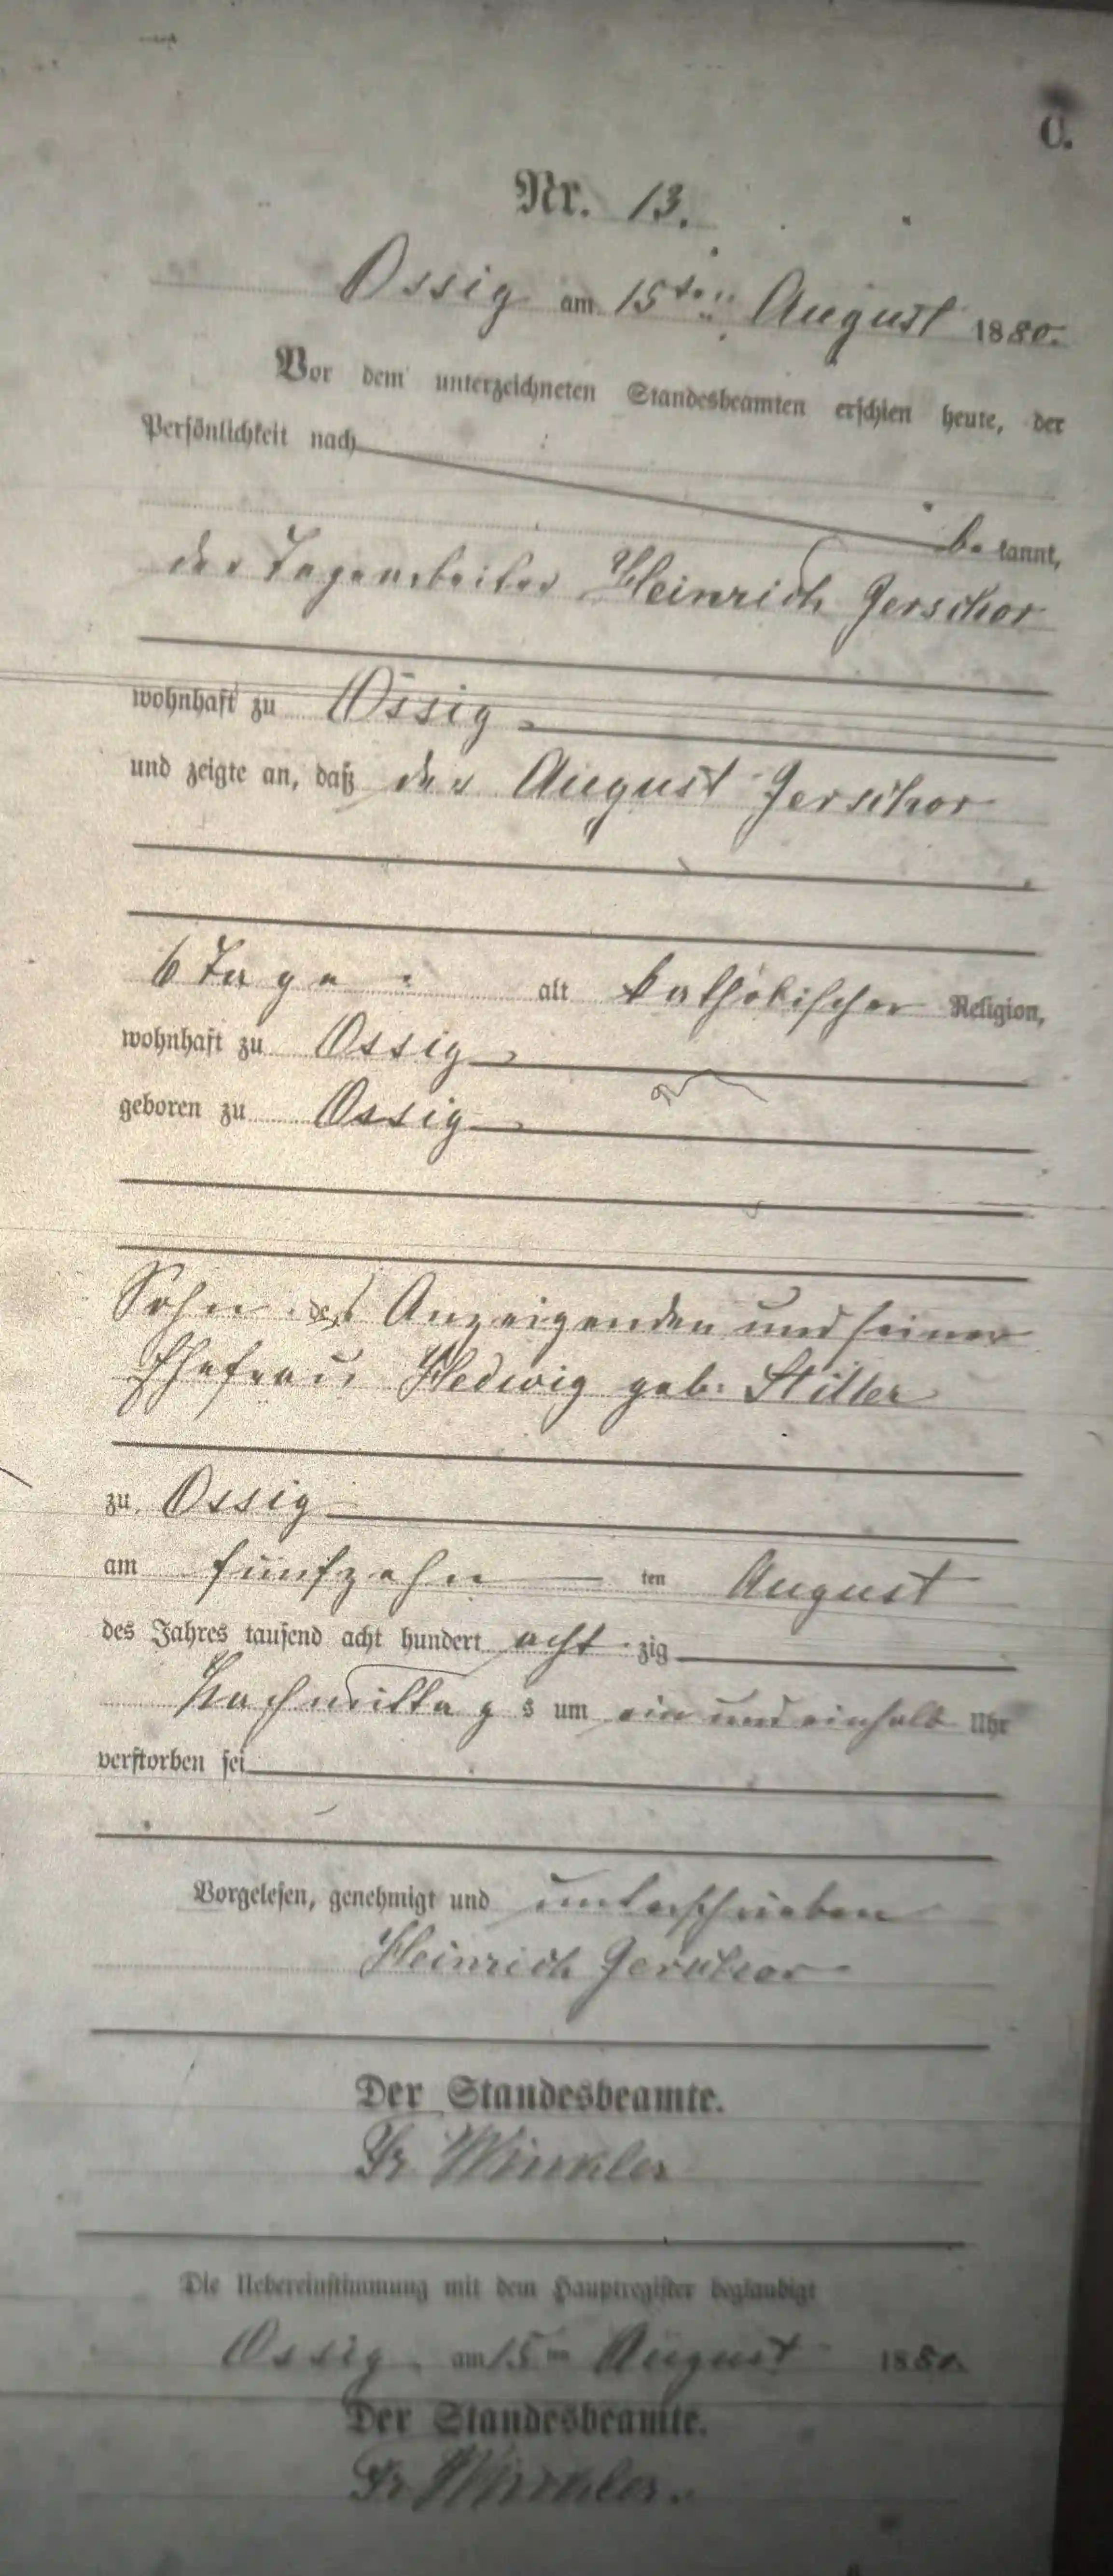 C.
Nr. 13.
Ossig am 15ten August 1880.
Vor dem unterzeichneten Standesbeamten erschien heute, der
Persönlichkeit nach
be kannt,
der Tagearbeiter Heinrich Gerschor
wohnhaft zu Ossig
und zeigte an, daß der August Gerschor
6 Tage alt katholischer Religion,
wohnhaft zu Ossig
geboren zu Ossig
Sohn des Anzeigenden und seiner
Ehefrau Hedwig geb. Stiller
zu Ossig
am fünfzehn ten August
des Jahres tausend acht hundert acht zig
Nachmittag s um ein und einhalb Uhr
verstorben sei
Vorgelesen, genehmigt und unterschrieben
Heinrich Gerschor
Der Standesbeamte.
Fr. Winkler
Die Uebereinstimmung mit dem Hauptregister beglaubigt
Ossig am 15ten August 1880.
Der Standesbeamte.
Fr. Winkler.